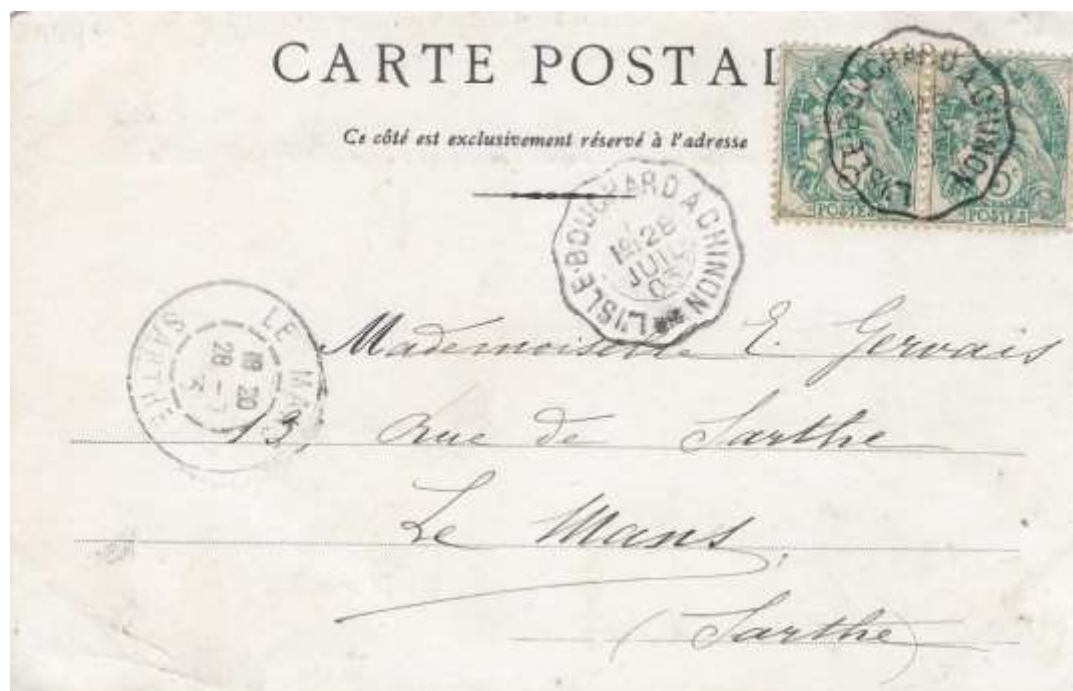 CARTE POSTAL
Ce côté est exclusivement réservé à l'adresse
L'ISLE-BOUCHARD A CHINON
POSTES
POSTES
L'ISLE-BOUCHARD A CHINON
1º 28
JUIL
03
LE MANS
SARTHE
19 20
28 -7
Mademoiselle E. Gervais
13, Rue de Sarthe
Le Mans.
(Sarthe)